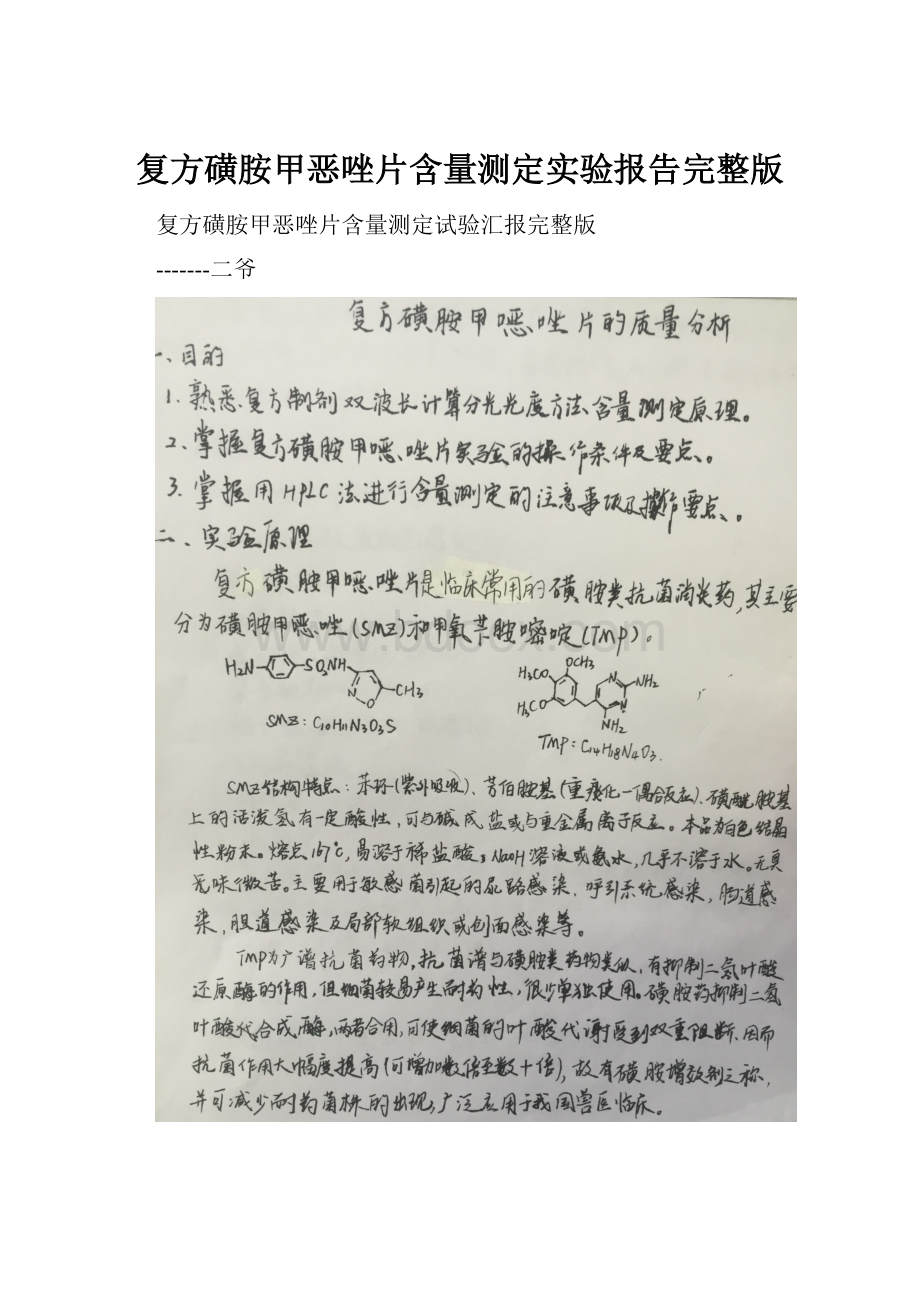 复方磺胺甲恶唑片含量测定实验报告完整版
复方磺胺甲恶唑片含量测定试验汇报完整版
-------二爷
复方磺胺甲噁唑片的质量分析
一、目的
1、熟悉复方制剂双波长计算分光光度方法含量测定原理。
2、掌握复方磺胺甲噁唑片实验的操作条件及要点。
3、掌握用HPLC法进行含量测定的注意事项及操作要点。
二、实验原理
复方磺胺甲噁唑片是临床常用的磺胺类抗菌消炎药,其主要
分为磺胺甲噁唑(SMZ)和甲氧苄胺嘧啶(TMP)。
H2N SO2NH N O CH3
H3CO OCH3 H3CO N NH2 N NH2
SMZ:C10H11N3O3S
TMP:C14H18N4O3.
SMZ结构特点:苯环(紫外吸收)、芳伯胺基(重氮化-偶合反应)、磺酰胺基
上的活泼氢有一定酸性,可与碱成盐或与重金属离子反应。本品为白色结晶
性粉末。熔点167℃,易溶于稀盐酸、NaOH溶液或氨水,几乎不溶于水。无臭
无味微苦。主要用于敏感菌引起的尿路感染,呼引系统感染,肠道感
染,胆道感染及局部软组织或创面感染等。
TMP为广谱抗菌药物,抗菌谱与磺胺类药物类似,有抑制二氢叶酸
还原酶的作用,但细菌较易产生耐药性,很少单独使用。磺胺药抑制二氢
叶酸代合成酶,两者合用,可使细菌的叶酸代谢受到双重阻断.因而
抗菌作用大幅度提高(可增加数倍至数十倍),故有磺胺增效剂之称,
并可减少耐药菌株的出现,广泛应用于我国兽医临床。
www.bdocx.com